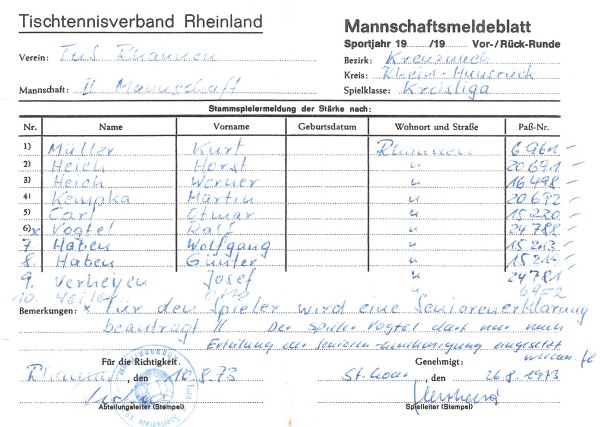 Tischtennisverband Rheinland
Mannschaftsmeldeblatt
Sportjahr 19 /19 Vor-/Rück-Runde
Verein: TuS Rhaunen
Bezirk: Kreuznach
Kreis: Rhein-Hunsrück
Mannschaft: II Mannschaft
Spielklasse: Kreisliga
Stammspielermeldung der Stärke nach:
Nr. Name Vorname Geburtsdatum Wohnort und Straße Paß-Nr.
1) Müller Kurt Rhaunen 6961 –
2) Heich Horst " 20691 –
3) Heich Werner " 16498 –
4) Kempka Martin " 20692 –
5) Carl Otmar " 15220 –
6) x Vogtel Ralf " 24788 –
7 Haben Wolfgang " 15213 –
8. Haben Günter " 15214 –
9. Verheyen Josef " 24781
10. 6952
Bemerkungen: x für den Spieler wird eine Seniorenerklärung
beantragt !! Der Spieler Vogtel darf nur nach
Erteilung der Senioren-Genehmigung eingesetzt
werden
Für die Richtigkeit. Genehmigt:
Rhaunen, den 10.8.73 , den 26.8.1973
Abteilungsleiter (Stempel) Spielleiter (Stempel)